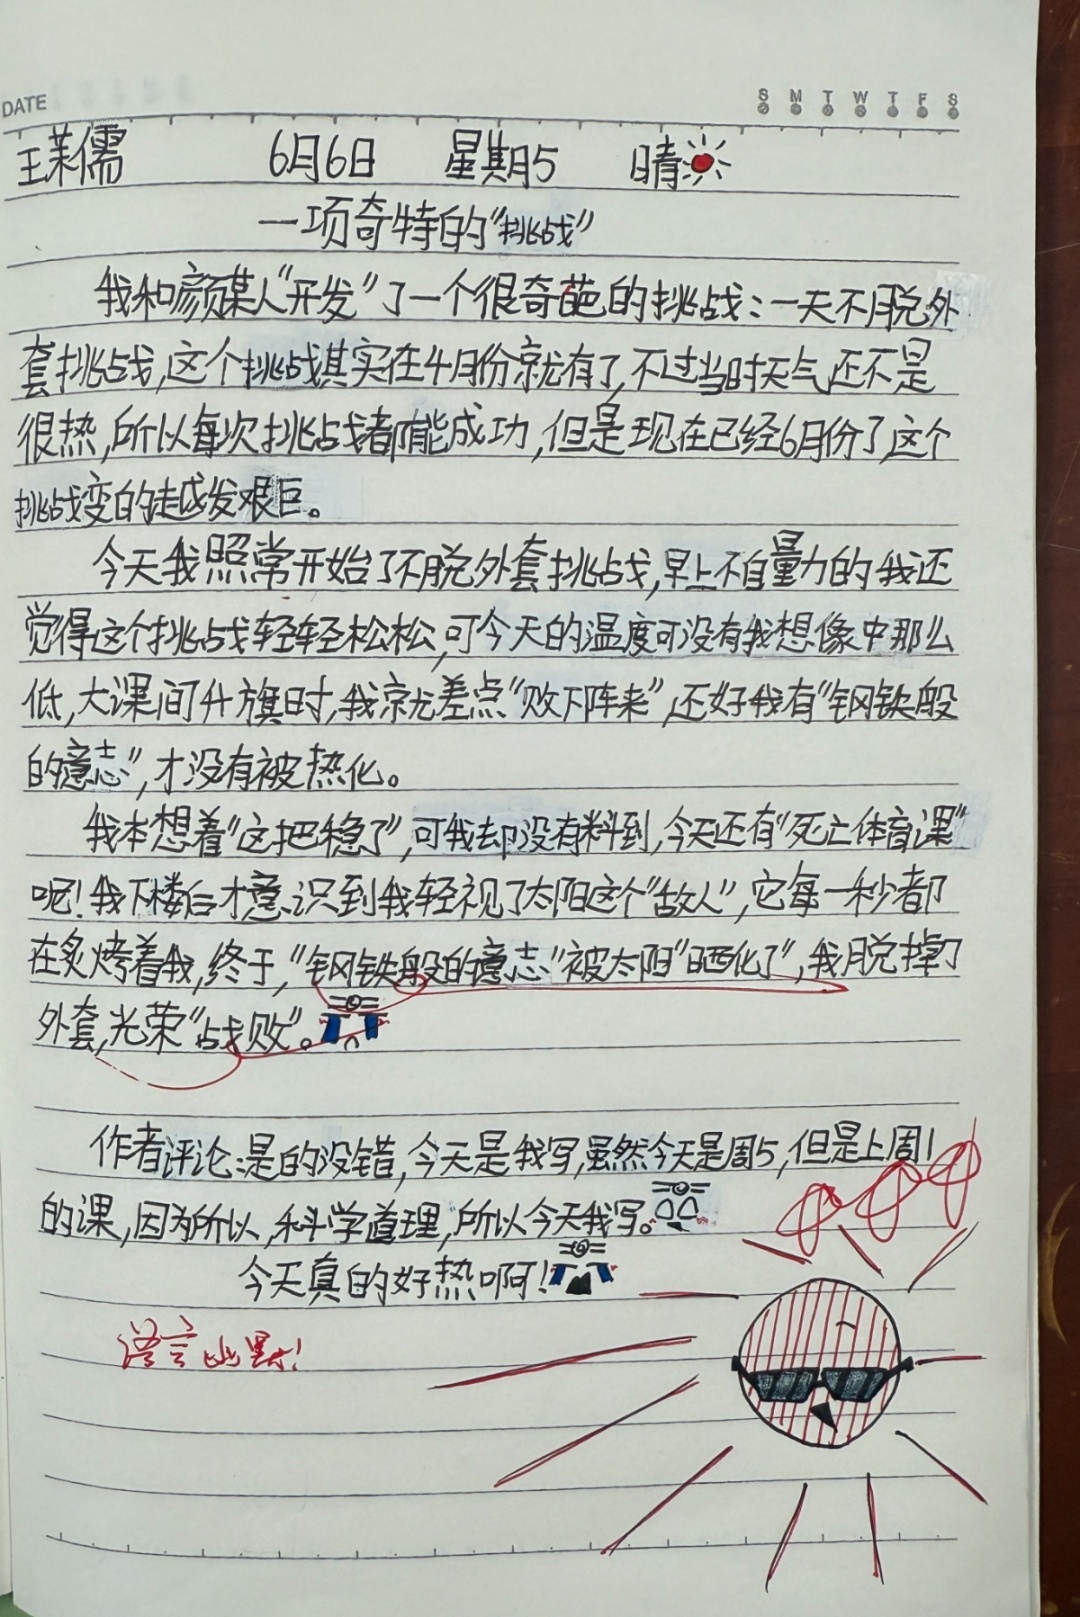 DATE
S M T W T F S
王茉儒 6月6日 星期5 晴
一项奇特的“挑战”
我和颜某人“开发”了一个很奇葩的挑战：一天不脱外
套挑战,这个挑战其实在4月份就有了,不过当时天气还不是
很热,所以每次挑战都能成功,但是现在已经6月份了,这个
挑战变的越发艰巨。
今天我照常开始了不脱外套挑战,早上不自量力的我还
觉得这个挑战轻轻松松,可今天的温度可没有我想像中那么
低,大课间升旗时,我就差点“败下阵来”,还好我有“钢铁般
的意志”,才没有被热化。
我本想着“这把稳了”,可我却没有料到,今天还有“死亡体育课”
呢!我下楼后才意识到我轻视了太阳这个“敌人”,它每一秒都
在炙烤着我,终于,“钢铁般的意志”被太阳“晒化了”,我脱掉了
外套,光荣“战败”。
作者评论:是的没错,今天是我写,虽然今天是周5,但是上周1
的课,因为所以,科学道理,所以今天我写。
今天真的好热啊!
语言幽默!